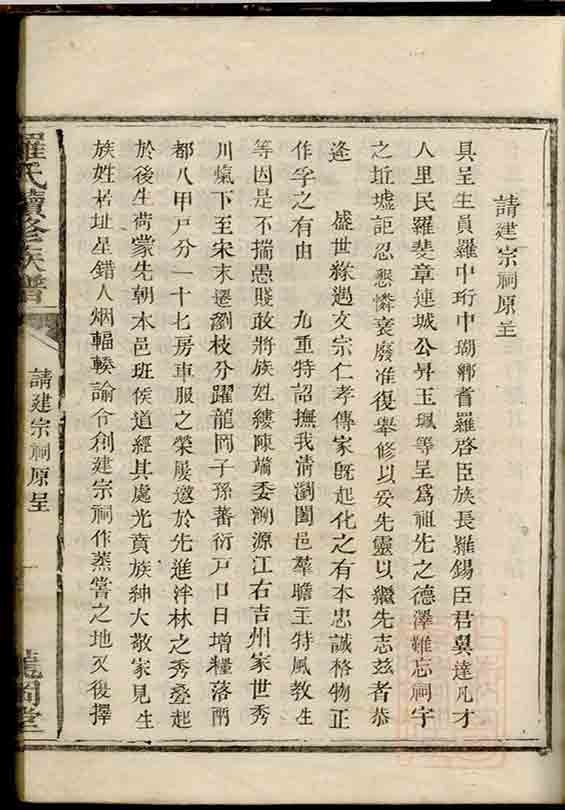 請建宗祠原呈
具呈生員羅中珩中瑚鄉耆羅啓臣族長羅錫臣君翼達凡才
人里民羅斐章連城公昇玉珮等呈爲祖先之德澤難忘祠宇
之坵墟詎忍懇憐衰廢准復舉修以妥先靈以繼先志茲者恭
逢 盛世緣遇文宗仁孝傳家旣起化之有本忠誠格物正
作孚之有由 九重特詔撫我淸瀏闔邑羣瞻主特風教生
等因是不揣愚賤敢將族姓縷陳端委溯源江右吉州家世秀
川熂下至宋末遷瀏枝分躍龍岡子孫蕃衍戸口日增糧落兩
都八甲戸分一十七房車服之榮屢邀於先進泮林之秀叠起
於後生荷蒙先朝本邑班侯道經其處光賁族紳大敬家見生
族姓居址星錯人烟輻輳諭令創建宗祠作蒸嘗之地又後擇
羅氏續修族譜
請建宗祠原呈
一